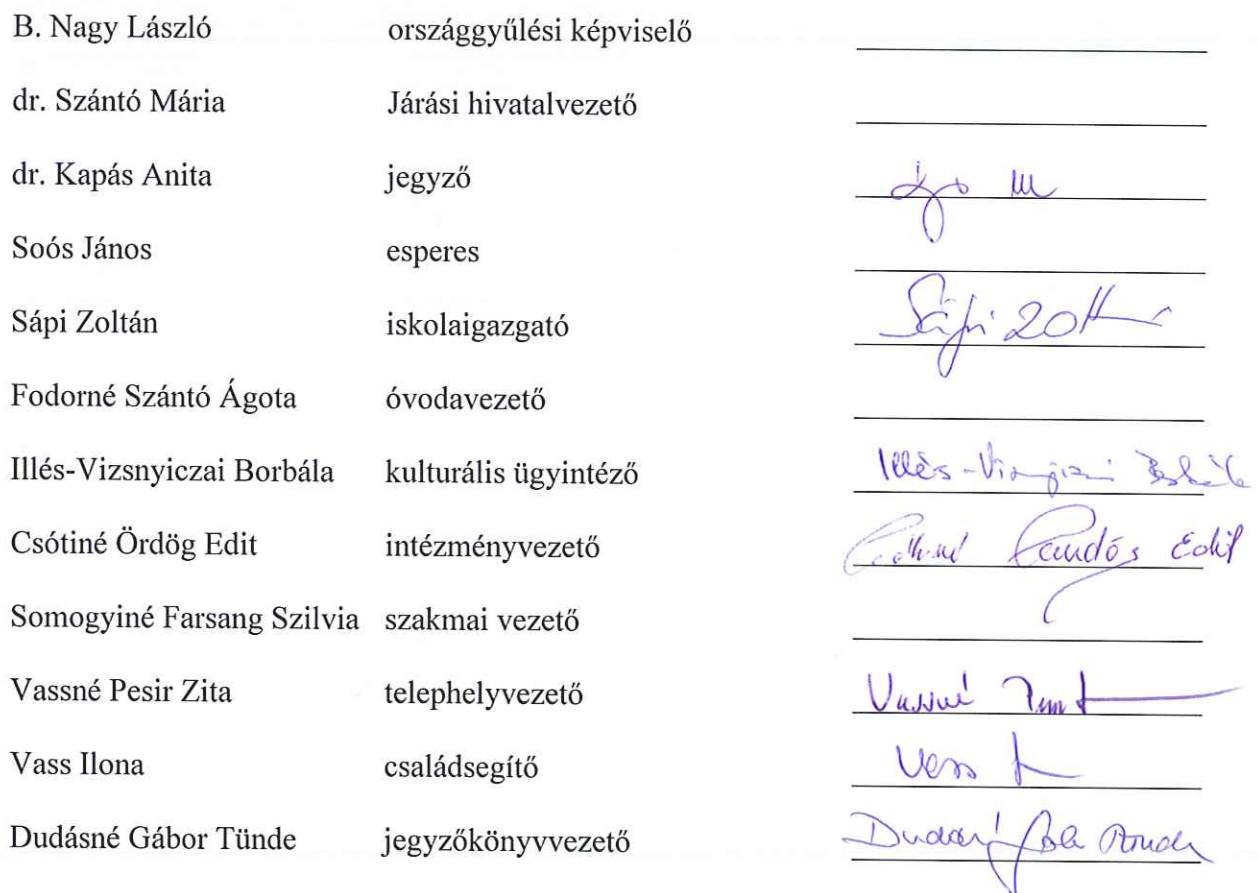 B. Nagy László országgyűlési képviselő
dr. Szántó Mária Járási hivatalvezető
dr. Kapás Anita jegyző
Soós János esperes
Sápi Zoltán iskolaigazgató Sápi
Fodorné Szántó Ágota óvodavezető
Illés-Vizsnyiczai Borbála kulturális ügyintéző Illés-
Csótiné Ördög Edit intézményvezető Edit
Somogyiné Farsang Szilvia szakmai vezető
Vassné Pesir Zita telephelyvezető Vassné
Vass Ilona családsegítő Vass
Dudásné Gábor Tünde jegyzőkönyvvezető